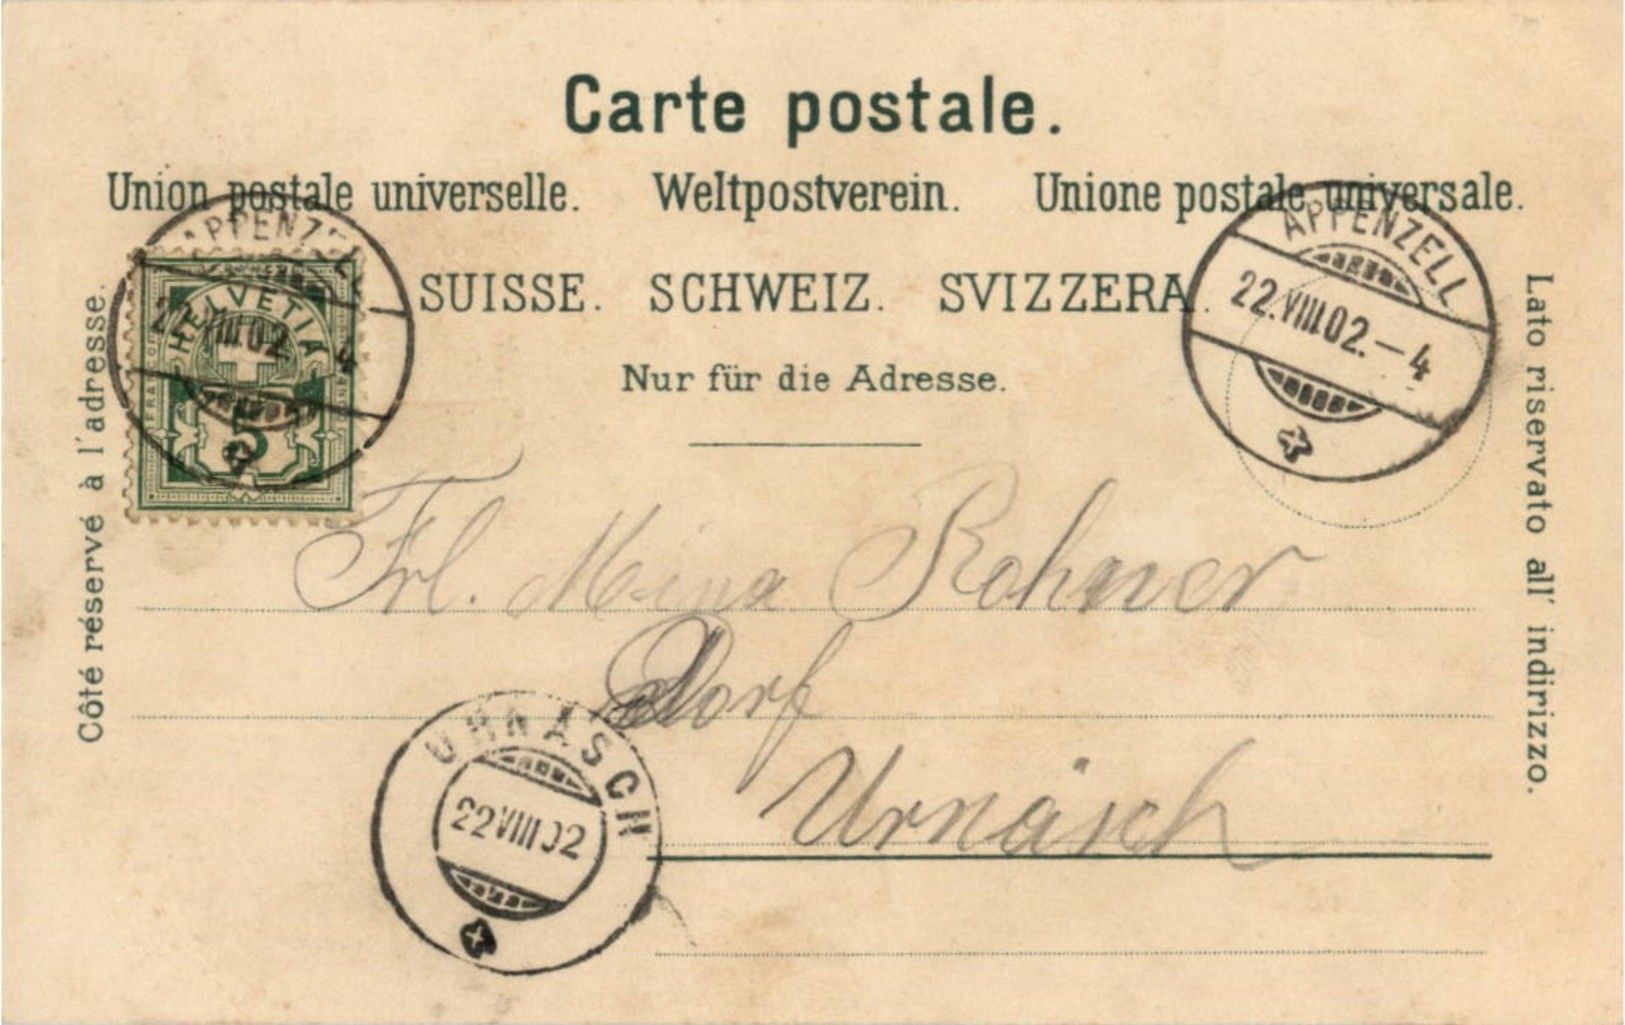 Carte postale.
Union postale universelle. Weltpostverein. Unione postale universale.
SUISSE. SCHWEIZ. SVIZZERA.
Nur für die Adresse.
Côté réservé à l'adresse.
Lato riservato all' indirizzo.
APPENZELL
22.VIII.02.–4
HELVETIA
FRANCO
5
APPENZELL
22.VIII.02.–4
Frl. Mina Rohner
Dorf
Urnäsch
URNÄSCH
22 VIII 02